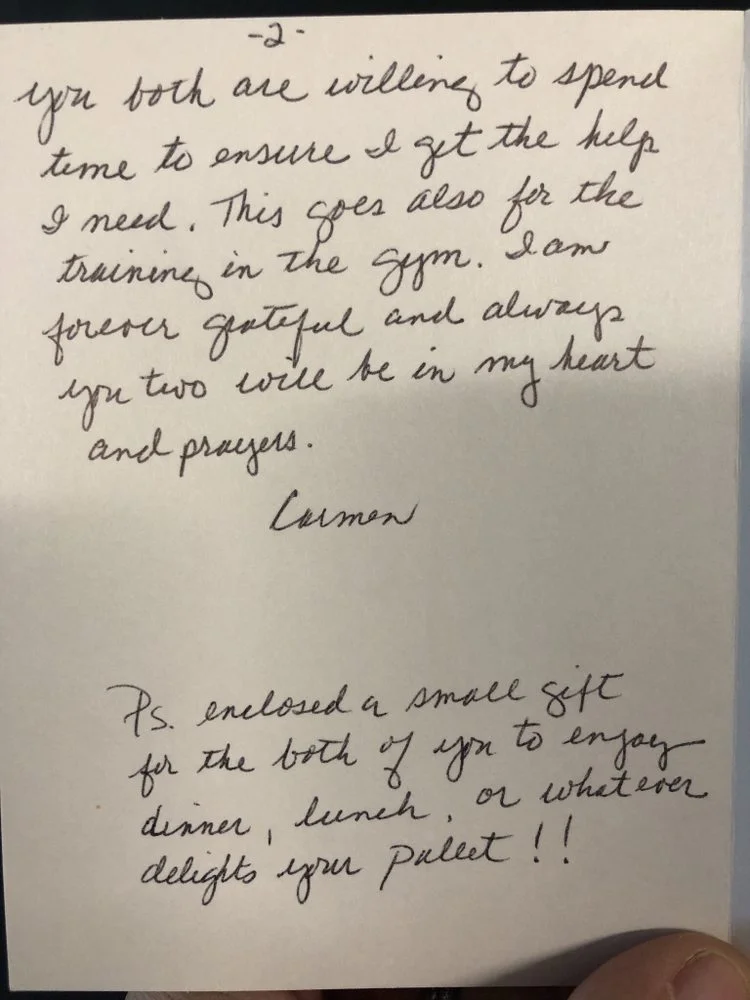 -2-
you both are willing to spend
time to ensure I get the help
I need. This goes also for the
training in the gym. I am
forever grateful and always
you two will be in my heart
and prayers.
Carmen
Ps. enclosed a small gift
for the both of you to enjoy
dinner, lunch, or whatever
delights your pallet!!